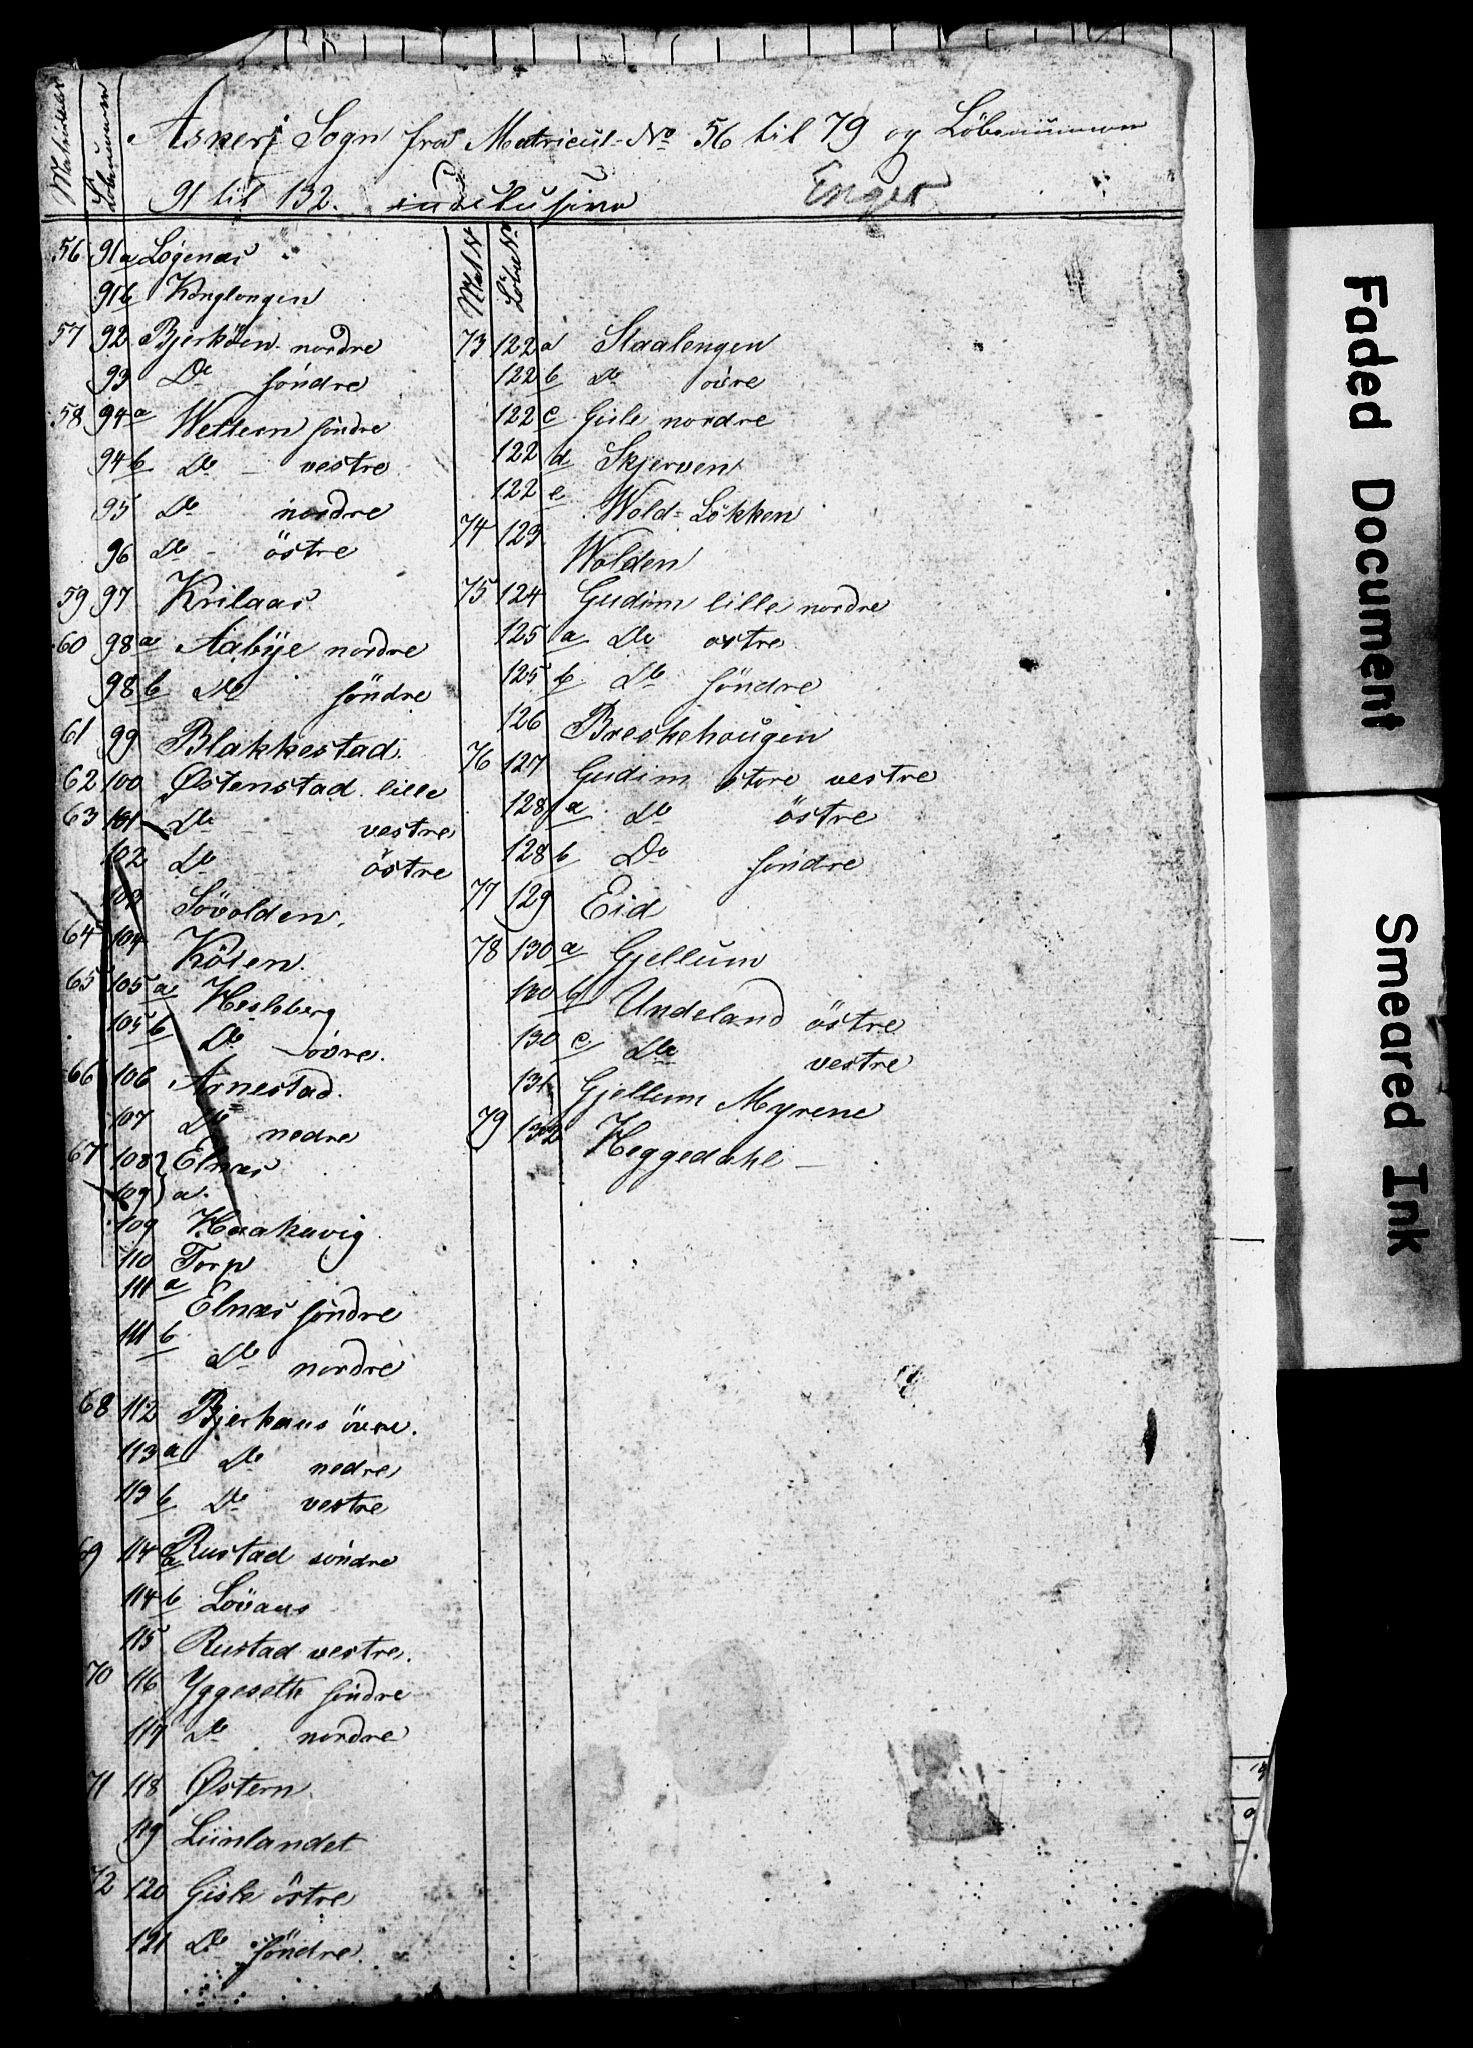 Matriculnr
Löbenummer
Asker Sogn fra Matricul-No 56 til 79 og Löbenummer
91 til 132. inclusive
Enger
56 91a Løgenæs
91b Konglongen
57 92 Bjerköen nordre
93 Do söndre
58 94a Wettern söndre
94b Do vestre
95 Do nordre
96 Do östre
59 97 Krilaas
60 98a Aabÿe nordre
98b Do söndre
61 99 Blakkestad
62 100 Østenstad lille
63 101 Do vestre
102 Do östre
103 Sövolden
64 104 Köien
65 105a Hesleberg
105b Do övre
66 106 Arnestad
107 Do nedre
67 108 Elnæs
109 a.
109 Haakavig
110 Torp
111a Elnæs söndre
111b Do nordre
68 112 Bjerkaas övre
113a Do nedre
113b Do vestre
69 114a Rustad söndre
114b Lövaas
115 Rustad vestre
70 116 Yggesette söndre
117 Do nordre
71 118 Østern
119 Liinlandet
72 120 Gisle östre
121 Do söndre
Mat No
Löbe No
73 122a Staalengen
122b Do övre
122c Gisle nordre
122d Skjerven
122e Wold-Lökken
74 123 Wolden
75 124 Gudim lille nordre
125a Do östre
125b Do söndre
126 Breskehaugen
76 127 Gudim store vestre
128a Do östre
128b Do söndre
77 129 Eid
78 130a Gjellum
130b Undeland östre
130c Do vestre
131 Gjellum Myrene
79 132 Heggedahl
Faded Document
Smeared Ink